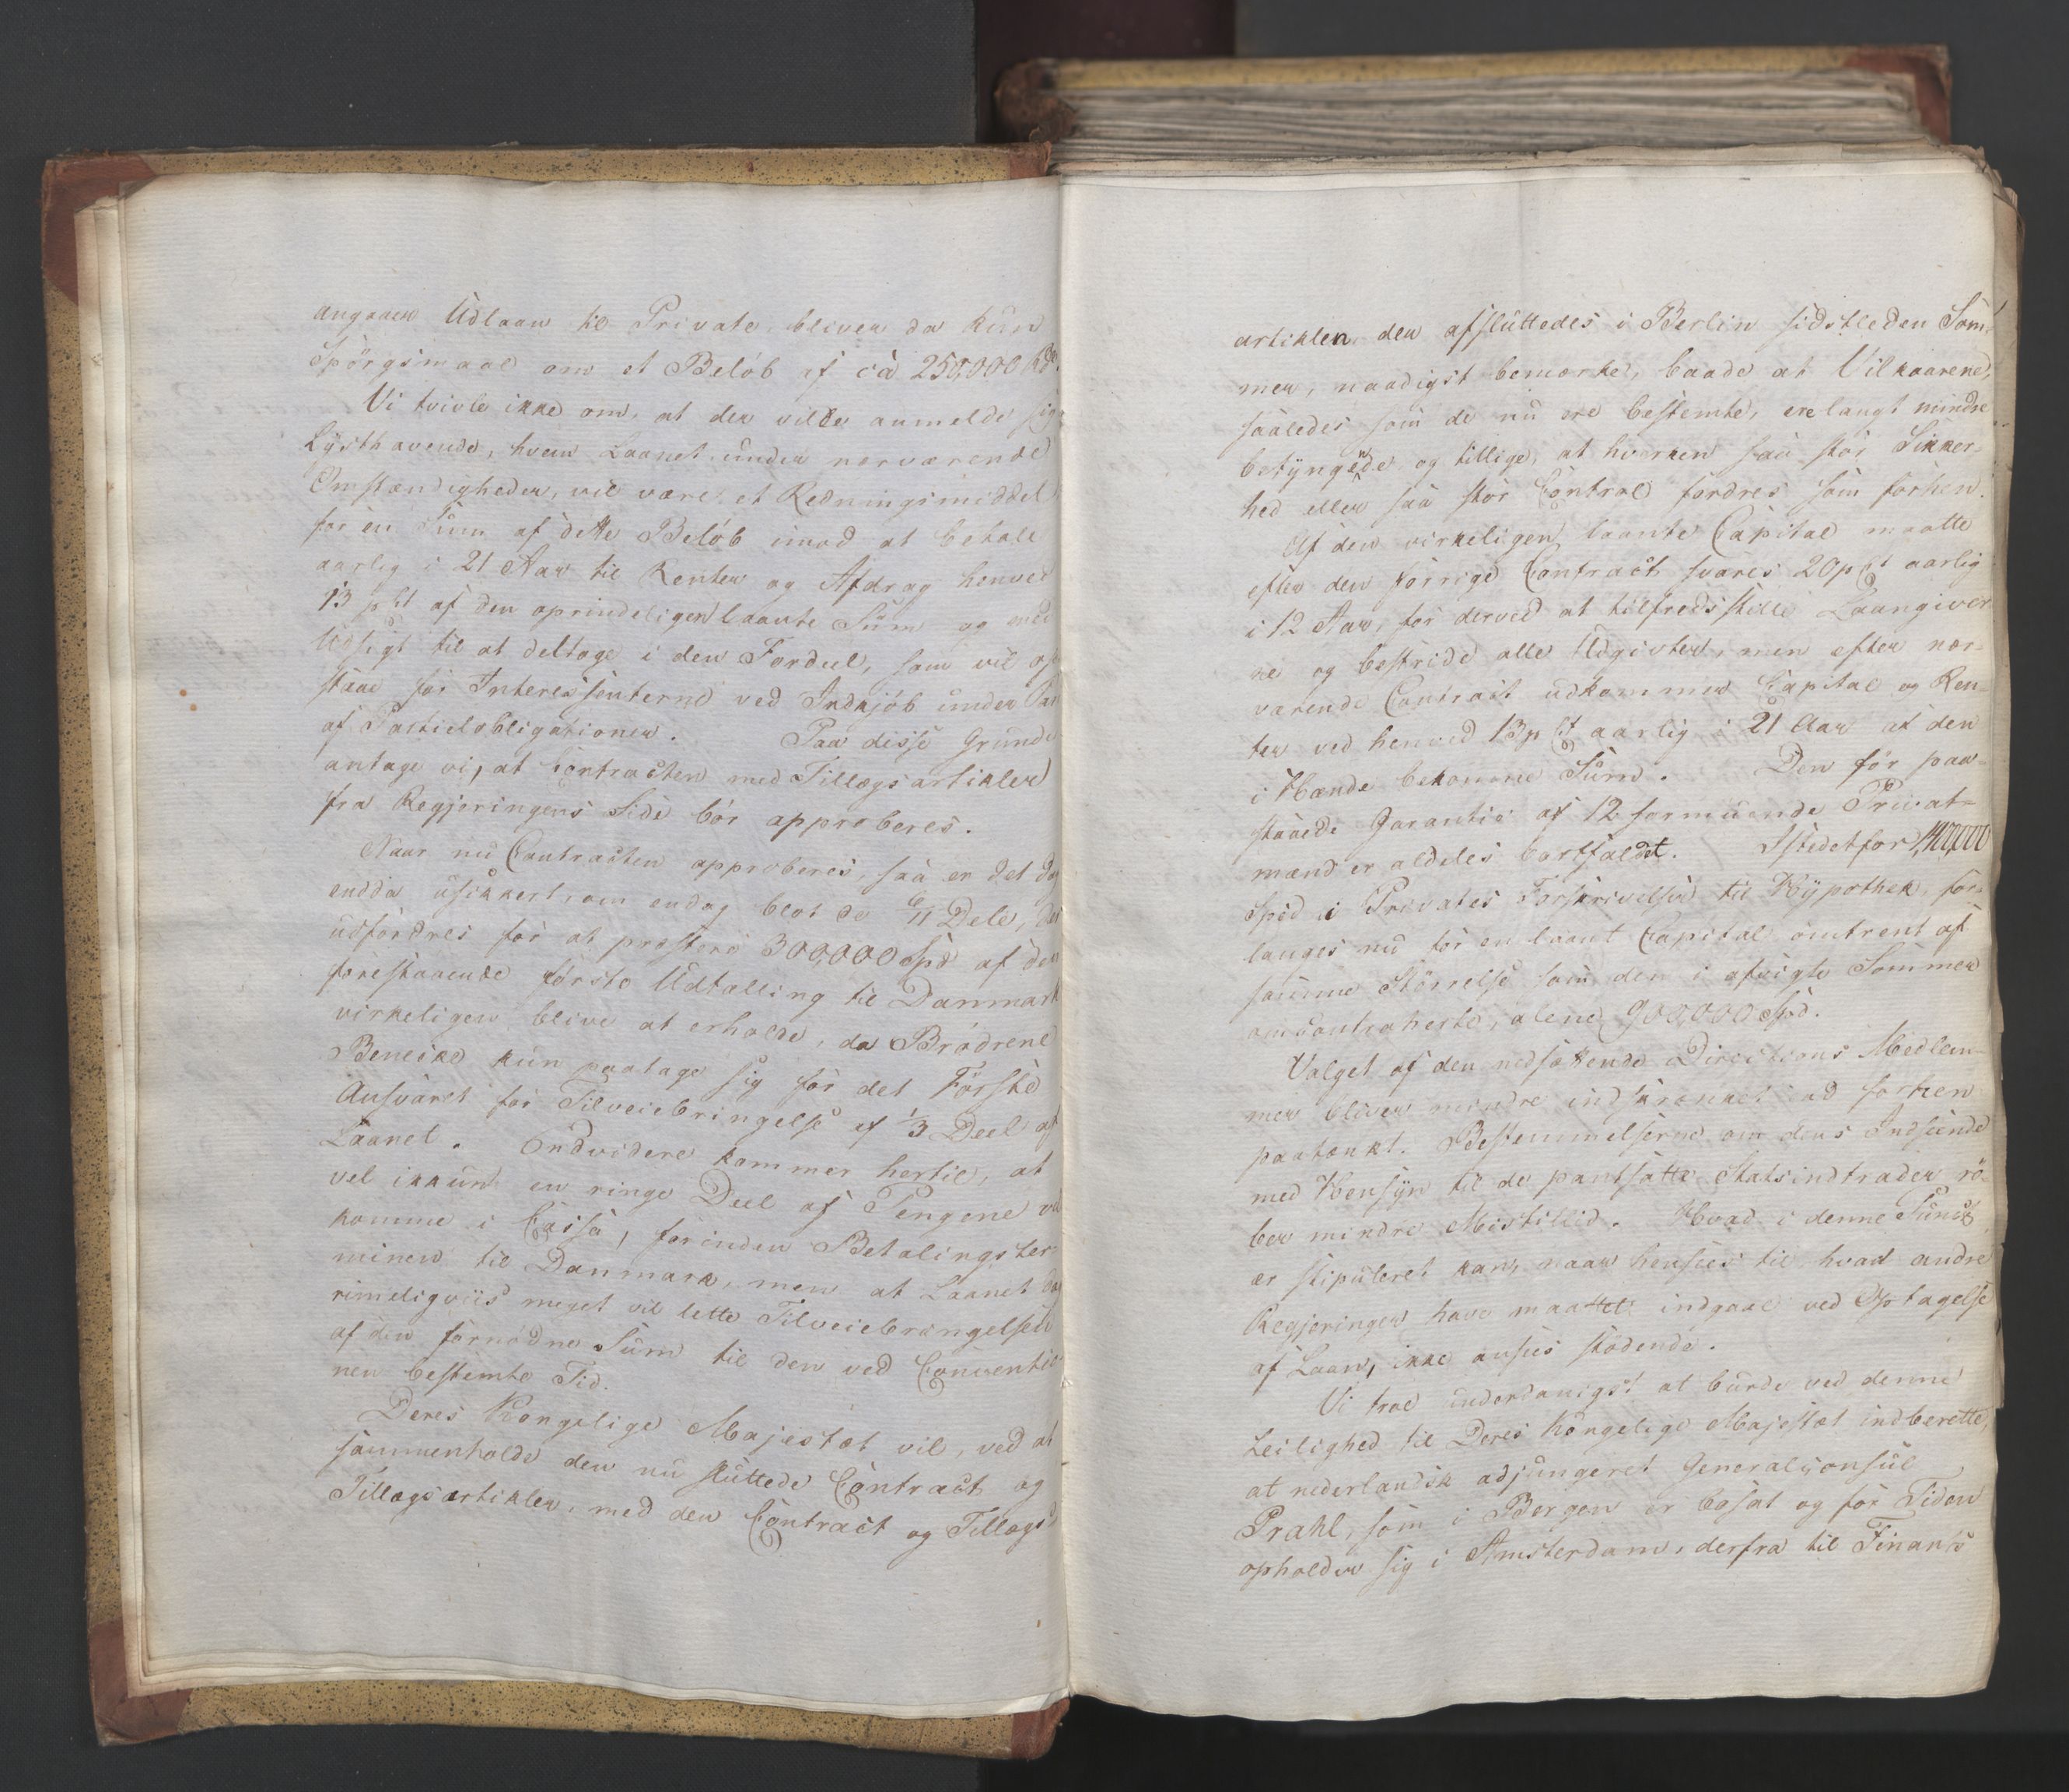 angaaer Udlaan til Private, bliver da kun
Spörgsmaal om et Belöb af cà 250,000 Rd.
Vi tvivle ikke om, at der vilde anmelde sig
Lysthavende, hvem Laanet under nærværende
Omstændigheder, vil være et Redningsmiddel
for en Sum af dette Belöb imod at betale
aarlig i 21 Aar til Renter og Afdrag henved
13 pCt af den oprindeligen laante Sum og med
Udsigt til at deltage i den Fordeel, som vil op
staae for Interessenterne ved Indkjöb under Pari
af Partielobligationer. Paa disse Grunde
antage vi, at Contracten med Tillægsartikler
fra Regjeringens Side bör approberes.
Naar nu Contracten approberes, saa er det dog
endda usikkert, om endog blot de 6/11 Dele, der
udfordres for at præstere 300,000 Spd af den
forestaaende förste Udtælling til Danmark
virkeligen blive at erholde, da Brödrene
Benecke kun paatage sig for det Förste
Ansvaret for Tilveiebringelse af 1/3 Deel af
Laanet. Endvidere kommer hertil, at
vel ikkun en ringe Deel af Pengene vil
komme i Cassa, forinden Betalingster
minen til Danmark, men at Laanet dog
rimeligviis meget vil lette Tilveiebringelsen
af den fornödne Sum til den ved Conventio
nen bestemte Tid.
Deres Kongelige Majestæt vil, ved at
sammenholde den nu sluttede Contract og
Tillægsartikler, med den Contract og Tillægs
artiklen der afsluttedes i Berlin sidstleden Som-
mer, naadigst bemærke, baade at Vilkaarene,
saaledes som de nu ere bestemte, ere langt mindre
betyngende og tillige, at hverken saa stor Sikker-
hed eller saa stor Control fordres som forhen.
Af den virkeligen laante Capital maatte
efter den forrige Contract svares 20 pCt aarlig
i 12 Aar, for derved at tilfredsstille Laangiver
ne og bestride alle Udgivter, men efter nær-
værende Contract udkommer Capital og Ren-
ter ved henved 13 pCt aarlig i 21 Aar af den
i Hænde bekomne Sum. Den för paa-
staaede Garantie af 12 formuende Privat-
mænd er aldeles bortfaldet. Istedetfor 1,400,000
Spd i Privates Forskrivelser til Hypothek, for-
langes nu for en laant Capital omtrent af
samme Störrelse som den i afvigte Sommer
omcontraherte, alene 900,000 Spd.
Valget af den nedsættende Directions Medlem-
mer bliver mindre indskrænket end forhen
paatænkt. Bestemmelserne om dens Indseende
med Hensyn til de pantsatte Statsindtræder rö-
ber mindre Mistillid. Hvad i denne Punct
er stipuleret kan, naar hensees til hvad andre
Regjeringer have maattet indgaae ved Optagelse
af Laan, ikke ansees stödende.
Vi troe underdanigst at burde ved denne
Leilighed til Deres Kongelige Majestæt indberette,
at nederlandsk adjungeret Generalconsul
Prahl, som i Bergen er bosat og for Tiden
opholder sig i Amsterdam, derfra til Finants